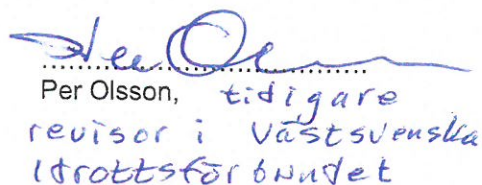 Per Olsson, tidigare
revisor i Västsvenska
Idrottsförbundet